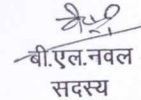 बी.एल.नवल
सदस्य